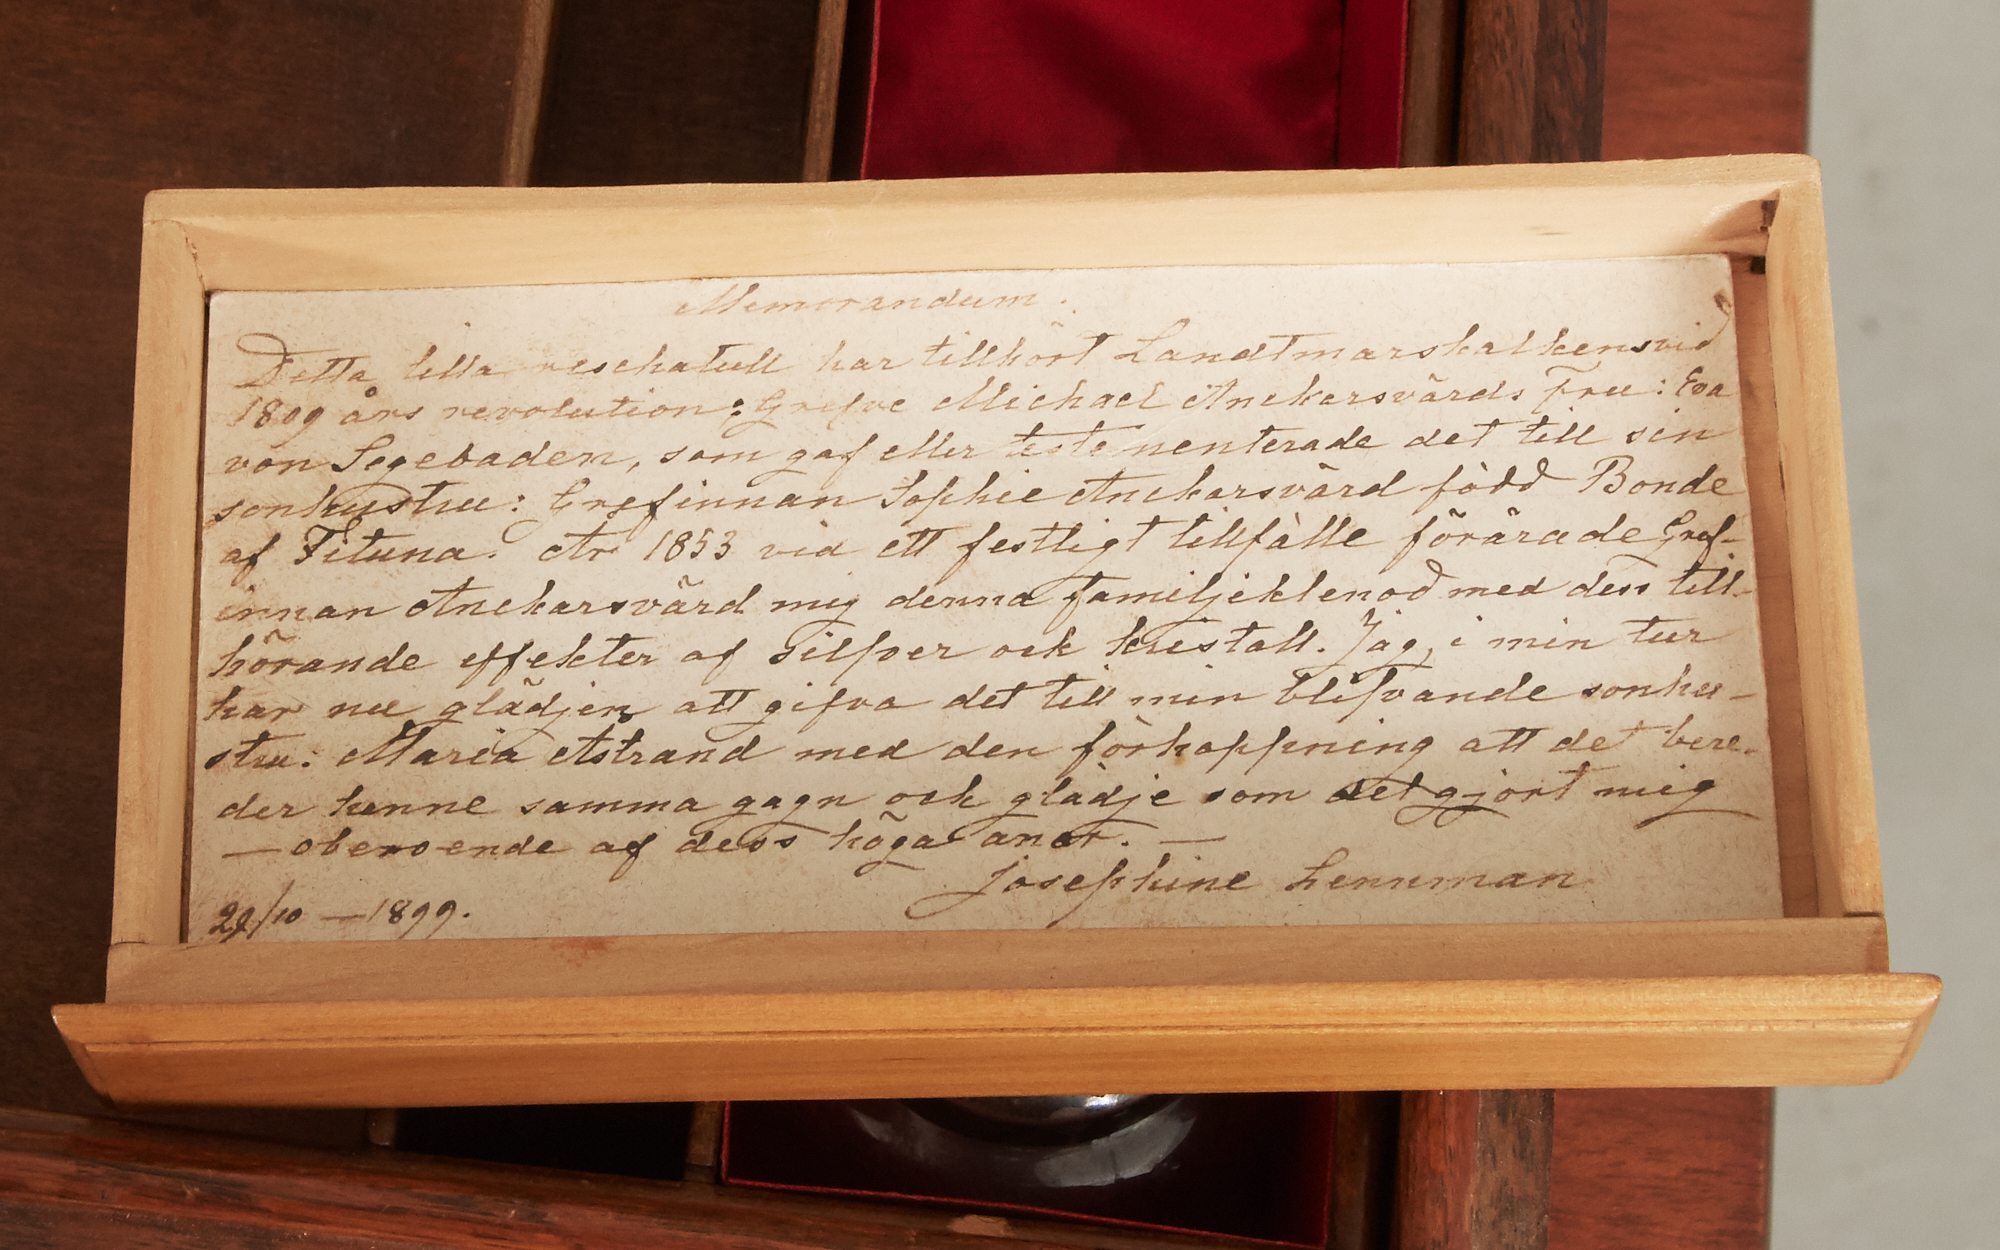 Memorandum.
Detta lilla reschatull har tillhört Landtmarskalkens vid
1809 års revolution: Grefve Michael Anckarsvärds Fru: Eva
von Segebaden, som gaf eller testamenterade det till sin
sonhustru: Grefinnan Sophie Anckarsvärd född Bonde
af Fituna. År 1853 vid ett festligt tillfälle förärade Gref-
innan Anckarsvärd mig denna familjeklenod med dess till-
hörande effekter af Silfver och kristall. Jag, i min tur
har nu glädjen att gifva det till min blifvande sonhu-
stru: Maria Astrand med den förhoppning att det bere-
der henne samma gagn och glädje som det gjort mig
— oberoende af dess höga anor. —
Josephine Lennman
29/10 — 1899.